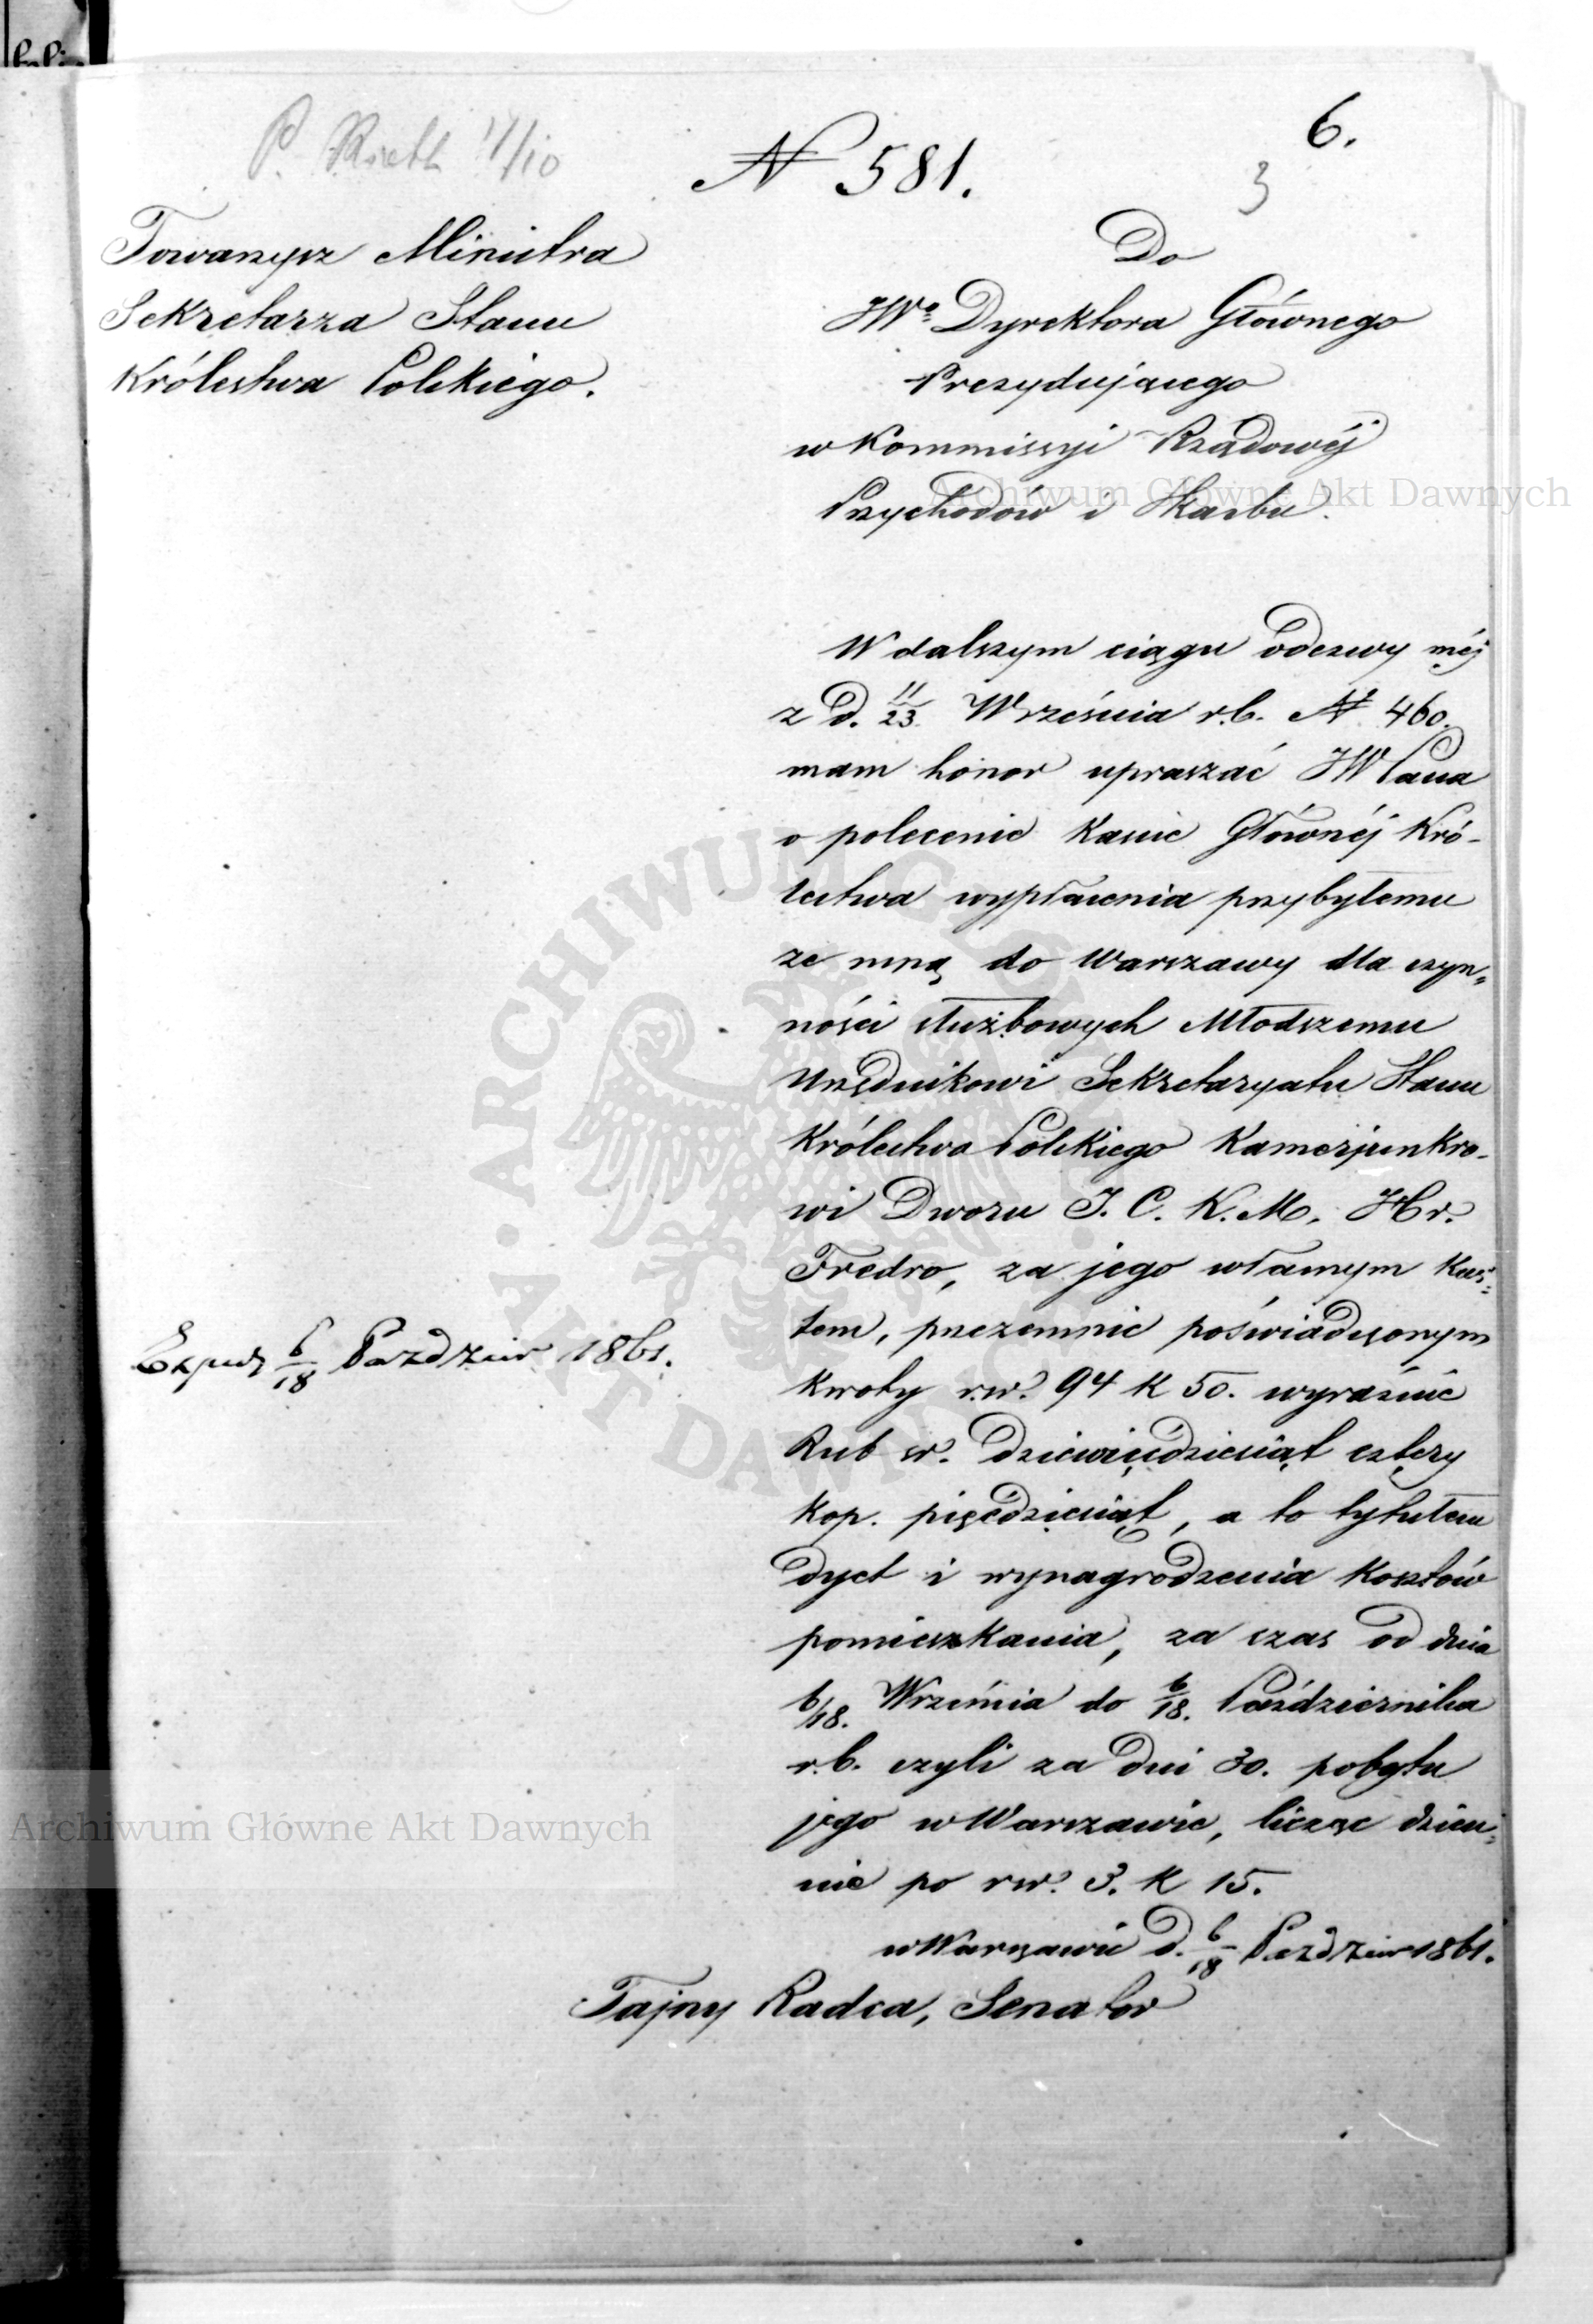 6.
№ 581.
3
P. 11/10
Towarzysz Ministra
Sekretarza Stanu
Królestwa Polskiego.
Do
JWo Dyrektora Głównego
Prezydującego
w Kommissyi Rządowéj
Przychodów i Skarbu.
W dalszym ciągu odezwy méj
z d. 11/23 Września r.b. № 460.
mam honor upraszać JW Pana
o polecenie Kasie Głównéj Kró-
lestwa wypłacenia przybyłemu
ze mną do Warszawy dla czyn=
ności służbowych Młodszemu
Urzędnikowi Sekretaryatu Stanu
Królestwa Polskiego Kamerjunkro-
wi Dworu J. C. K. M. Hr.
Fredro, za jego własnym kwi=
tem, przezemnie poświadczonym
kwoty rsr. 94 k 50. wyraźnie
Rub sr. dziewięćdziesiąt cztery
kop. pięćdziesiąt, a to tytułem
dyet i wynagrodzenia kosztów
pomieszkania, za czas od dnia
6/18. Września do 6/18. Października
r.b. czyli za dni 30. pobytu
jego w Warszawie, licząc dzien=
nie po rsr. 3. k 15.
w Warszawie d. 6/18 Paździer 1861.
Tajny Radca, Senator
Exped 6/18 Paździer 1861.
Archiwum Główne Akt Dawnych
Archiwum Główne Akt Dawnych
ARCHIWUM GŁÓWNE • AKT DAWNYCH •